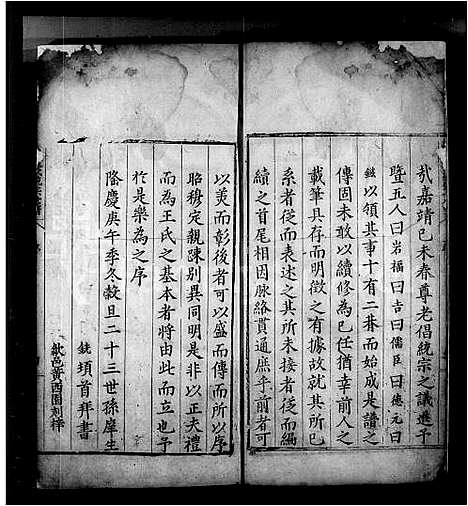 哉嘉靖己未春尊老倡統宗之議進予
暨五人曰岩福曰吉曰儒臣曰德元曰
鉉以領其事十有二暮而始成是譜之
傳固未敢以續修為已任猶幸前人之
載筆具存而明徵之有據故就其所已
系者從而表述之其所未接者從而編
續之首尾相因脉絡貫通庶乎前者可
以美而彰後者可以盛而傳而所以序
昭穆定親疎別異同明是非以正夫禮
而為王氏之基本者將由此而立也予
於是樂為之序
隆慶庚午季冬穀旦二十三世孫庠生
銑頊首拜書
歙邑黄西園刻梓